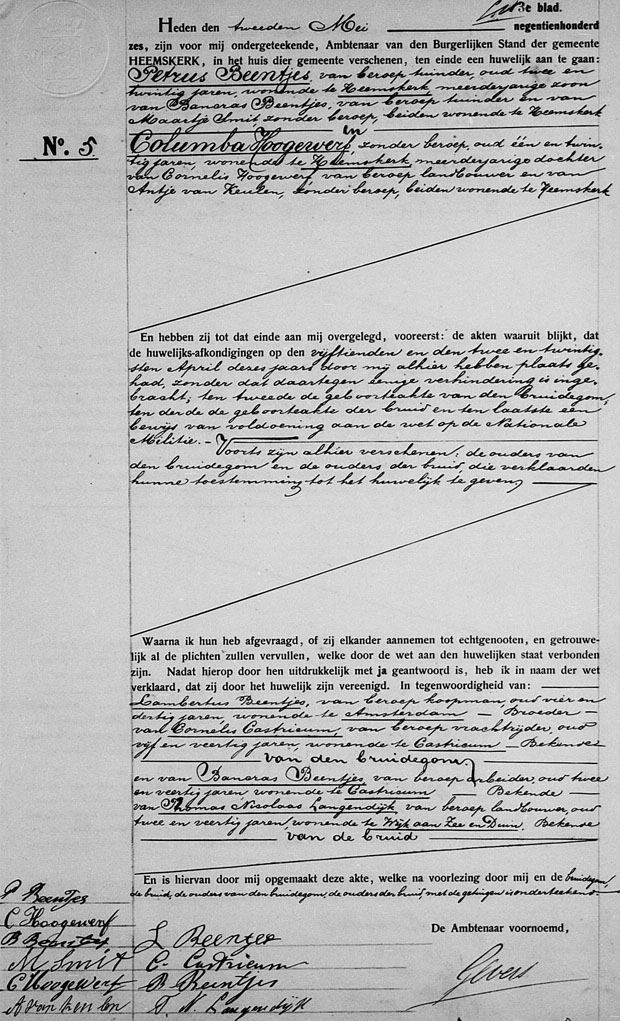 3e blad.
Heden den tweeden Mei negentienhonderd
zes, zijn voor mij ondergeteekende, Ambtenaar van den Burgerlijken Stand der gemeente
HEEMSKERK, in het huis dier gemeente verschenen, ten einde een huwelijk aan te gaan:
Petrus Beentjes, van beroep tuinder, oud twee en
twintig jaren, wonende te Heemskerk meerderjarige zoon
van Bancras Beentjes, van beroep tuinder en van
Maartje Smit zonder beroep, beiden wonende te Heemskerk
en
No. 5
Columba Hoogewerf, zonder beroep, oud één en twin-
tig jaren, wonende te Heemskerk, meerderjarige dochter
van Cornelis Hoogewerf, van beroep landbouwer en van
Antje van Keulen, zonder beroep, beiden wonende te Heemskerk
En hebben zij tot dat einde aan mij overgelegd, vooreerst: de akten waaruit blijkt, dat
de huwelijks-afkondigingen op den vijftienden en den twee en twintig-
sten April dezes jaars door mij alhier hebben plaats ge-
had, zonder dat daartegen eenige verhindering is inge-
bracht; ten tweede de geboorteakte van den bruidegom;
ten derde de geboorteakte der bruid en ten laatste een
bewijs van voldoening aan de wet op de Nationale
Militie. - Voorts zijn alhier verschenen: de ouders van
den bruidegom en de ouders der bruid, die verklaarden
hunne toestemming tot het huwelijk te geven,
Waarna ik hun heb afgevraagd, of zij elkander aannemen tot echtgenooten, en getrouwe-
lijk al de plichten zullen vervullen, welke door de wet aan den huwelijken staat verbonden
zijn. Nadat hierop door hen uitdrukkelijk met ja geantwoord is, heb ik in naam der wet
verklaard, dat zij door het huwelijk zijn vereenigd. In tegenwoordigheid van:
Lambertus Beentjes, van beroep koopman, oud vier en
dertig jaren, wonende te Amsterdam - Broeder
van Cornelis Castricum, van beroep vrachtrijder, oud
vijf en veertig jaren, wonende te Castricum - Bekende
van den bruidegom,
en van Bancras Beentjes, van beroep arbeider, oud twee
en veertig jaren wonende te Castricum - Bekende
van Thomas Nicolaas Langendijk van beroep landbouwer, oud
twee en veertig jaren, wonende te Wijk aan Zee en Duin. Bekende
van de bruid
En is hiervan door mij opgemaakt deze akte, welke na voorlezing door mij en de bruidegom,
de bruid, de ouders van den bruidegom, de ouders der bruid, met de getuigen is onderteekend.
De Ambtenaar voornoemd,
P Beentjes
C Hoogewerf
B Beentjes
M Smit
C Hoogewerf
A van Keulen
L Beentjes
C. Castricum
B Beentjes
T. N. Langendijk
Gevers